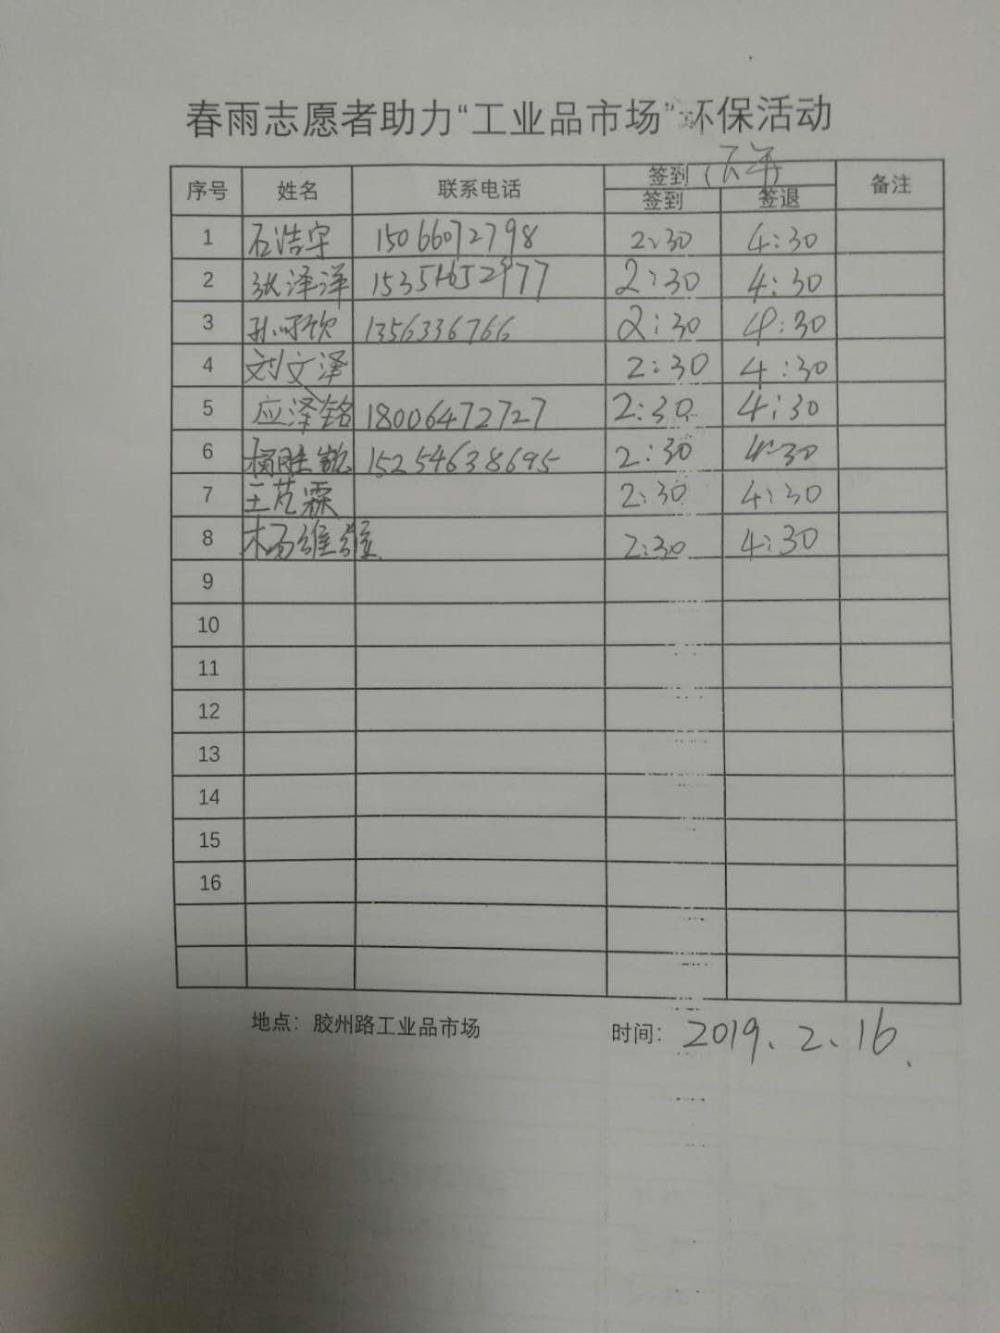 春雨志愿者助力“工业品市场”环保活动
序号 姓名 联系电话 签到（下午） 备注
签到 签退
1 石浩宇 15066072798 2:30 4:30
2 张泽洋 2:30 4:30
3 1356336766 2:30 4:30
4 刘文泽 2:30 4:30
5 应泽铭 18006472727 2:30 4:30
6 15254638695 2:30 4:30
7 王艺霖 2:30 4:30
8 杨维维 2:30 4:30
9
10
11
12
13
14
15
16
地点：胶州路工业品市场 时间：2019.2.16.